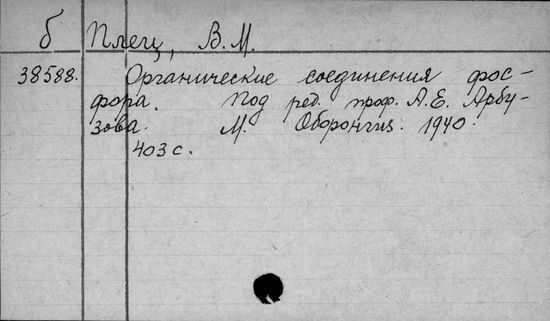 б Плец, В.М.
38588. Органические соединения фос-
фора. Под ред. проф. А.Е. Арбу-
зова. М. Оборонгиз. 1940.
403 с.